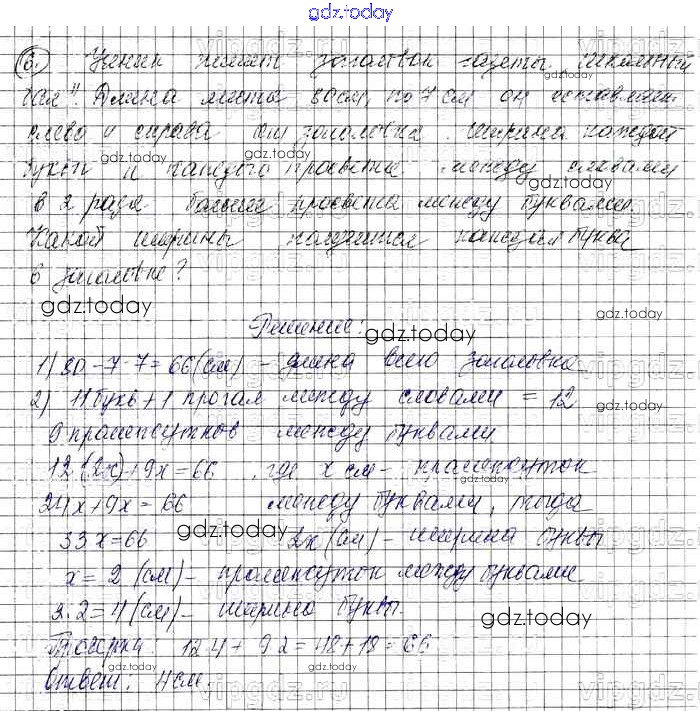 gdz.today
6. Ученик пишет заголовок газеты „Школьный
вал". Длина листа 80см, по 7 см он оставляет
слева и справа от заголовка. Ширина каждой
буквы и каждого просвета между словами
в 2 раза больше просвета между буквами.
Какой ширины получится каждая буква
в заголовке?
gdz.today
Решение:
gdz.today
1) 80-7-7=66(см) - длина всего заголовка
2) 11 букв+1 прогал между словами = 12
9 промежутков между буквами
12·(2x)+9x=66, где x см- промежуток
24x+9x=66 между буквами, тогда
33x=66 2x (см) - ширина буквы
gdz.today
x=2 (см) - промежуток между буквами
2·2=4(см)- ширина буквы
gdz.today
12·4+9·2=48+18=66
gdz.today
Ответ: 4см.
vipgdz.ru